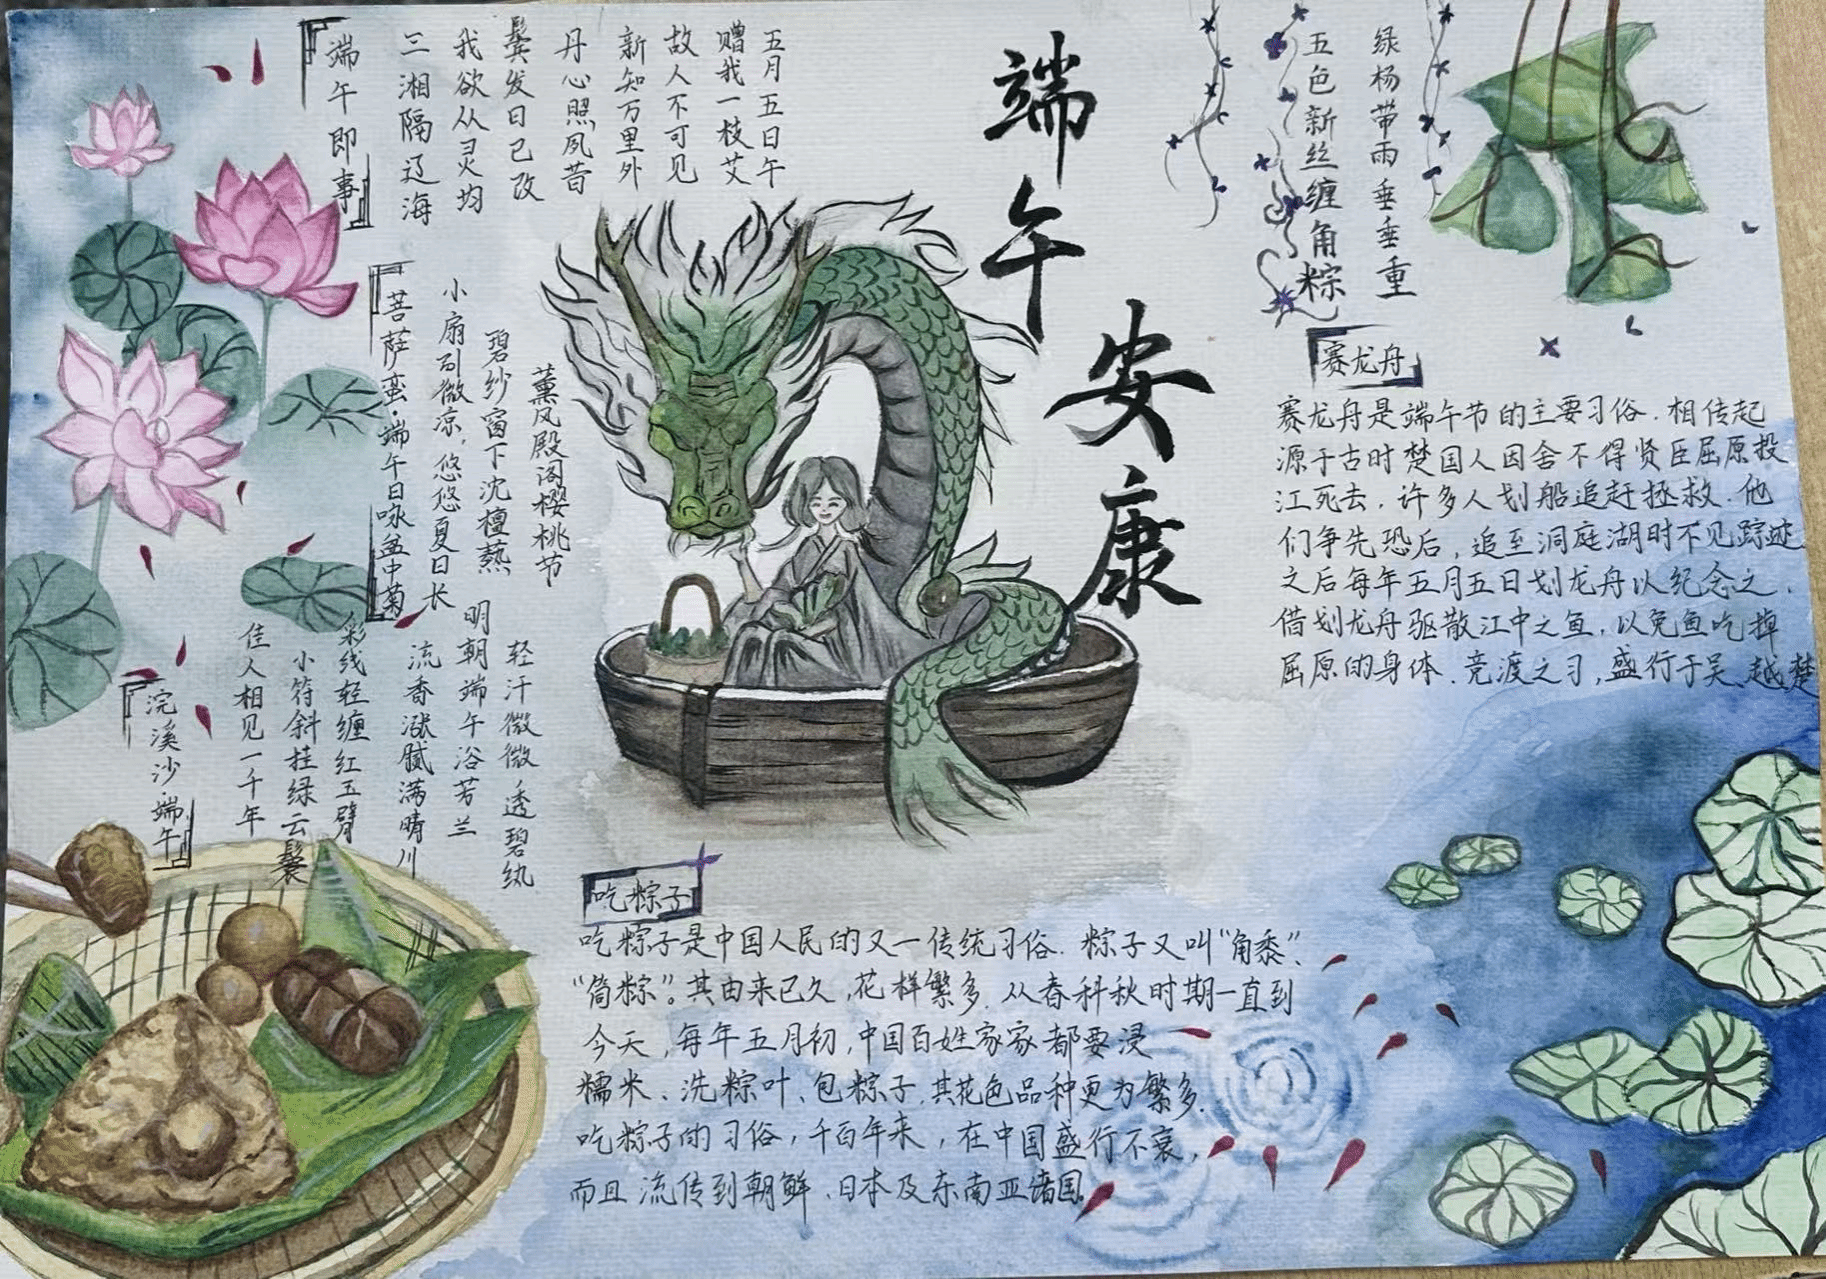 端午安康
绿杨带雨垂垂重
五色新丝缠角粽
五月五日午
赠我一枝艾
故人不可见
新知万里外
丹心照夙昔
鬓发日已改
我欲从灵均
三湘隔辽海
端午即事
薰风殿阁樱桃节
碧纱窗下沈檀爇
小扇引微凉，悠悠夏日长
菩萨蛮·端午日咏盆中菊
轻汗微微透碧纨
明朝端午浴芳兰
流香涨腻满晴川
彩线轻缠红玉臂
小符斜挂绿云鬟
佳人相见一千年
浣溪沙·端午
赛龙舟
赛龙舟是端午节的主要习俗．相传起
源于古时楚国人因舍不得贤臣屈原投
江死去，许多人划船追赶拯救．他
们争先恐后，追至洞庭湖时不见踪迹
之后每年五月五日划龙舟以纪念之．
借划龙舟驱散江中之鱼，以免鱼吃掉
屈原的身体．竞渡之习，盛行于吴、越、楚
吃粽子
吃粽子是中国人民的又一传统习俗．粽子又叫“角黍”、
“筒粽”。其由来已久，花样繁多．从春科秋时期一直到
今天，每年五月初，中国百姓家家都要浸
糯米、洗粽叶、包粽子，其花色品种更为繁多．
吃粽子的习俗，千百年来，在中国盛行不衰，
而且流传到朝鲜、日本及东南亚诸国．